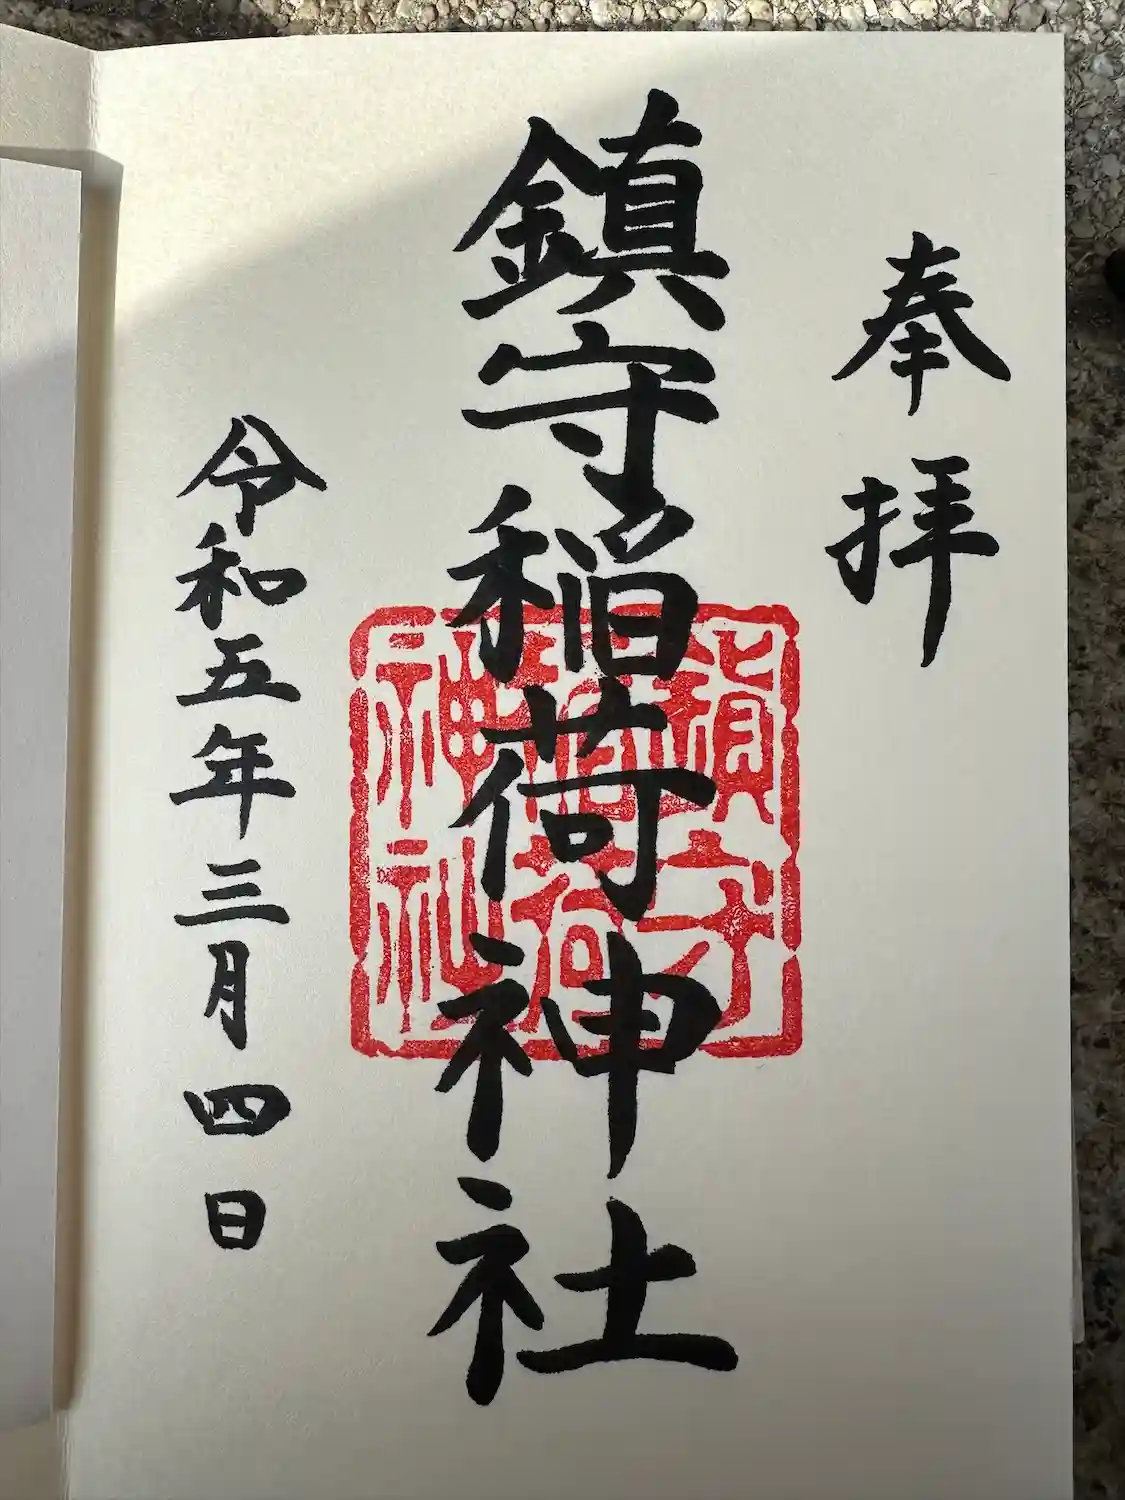 奉拝
鎮守稲荷神社
鎮守稲荷神社
令和五年三月四日